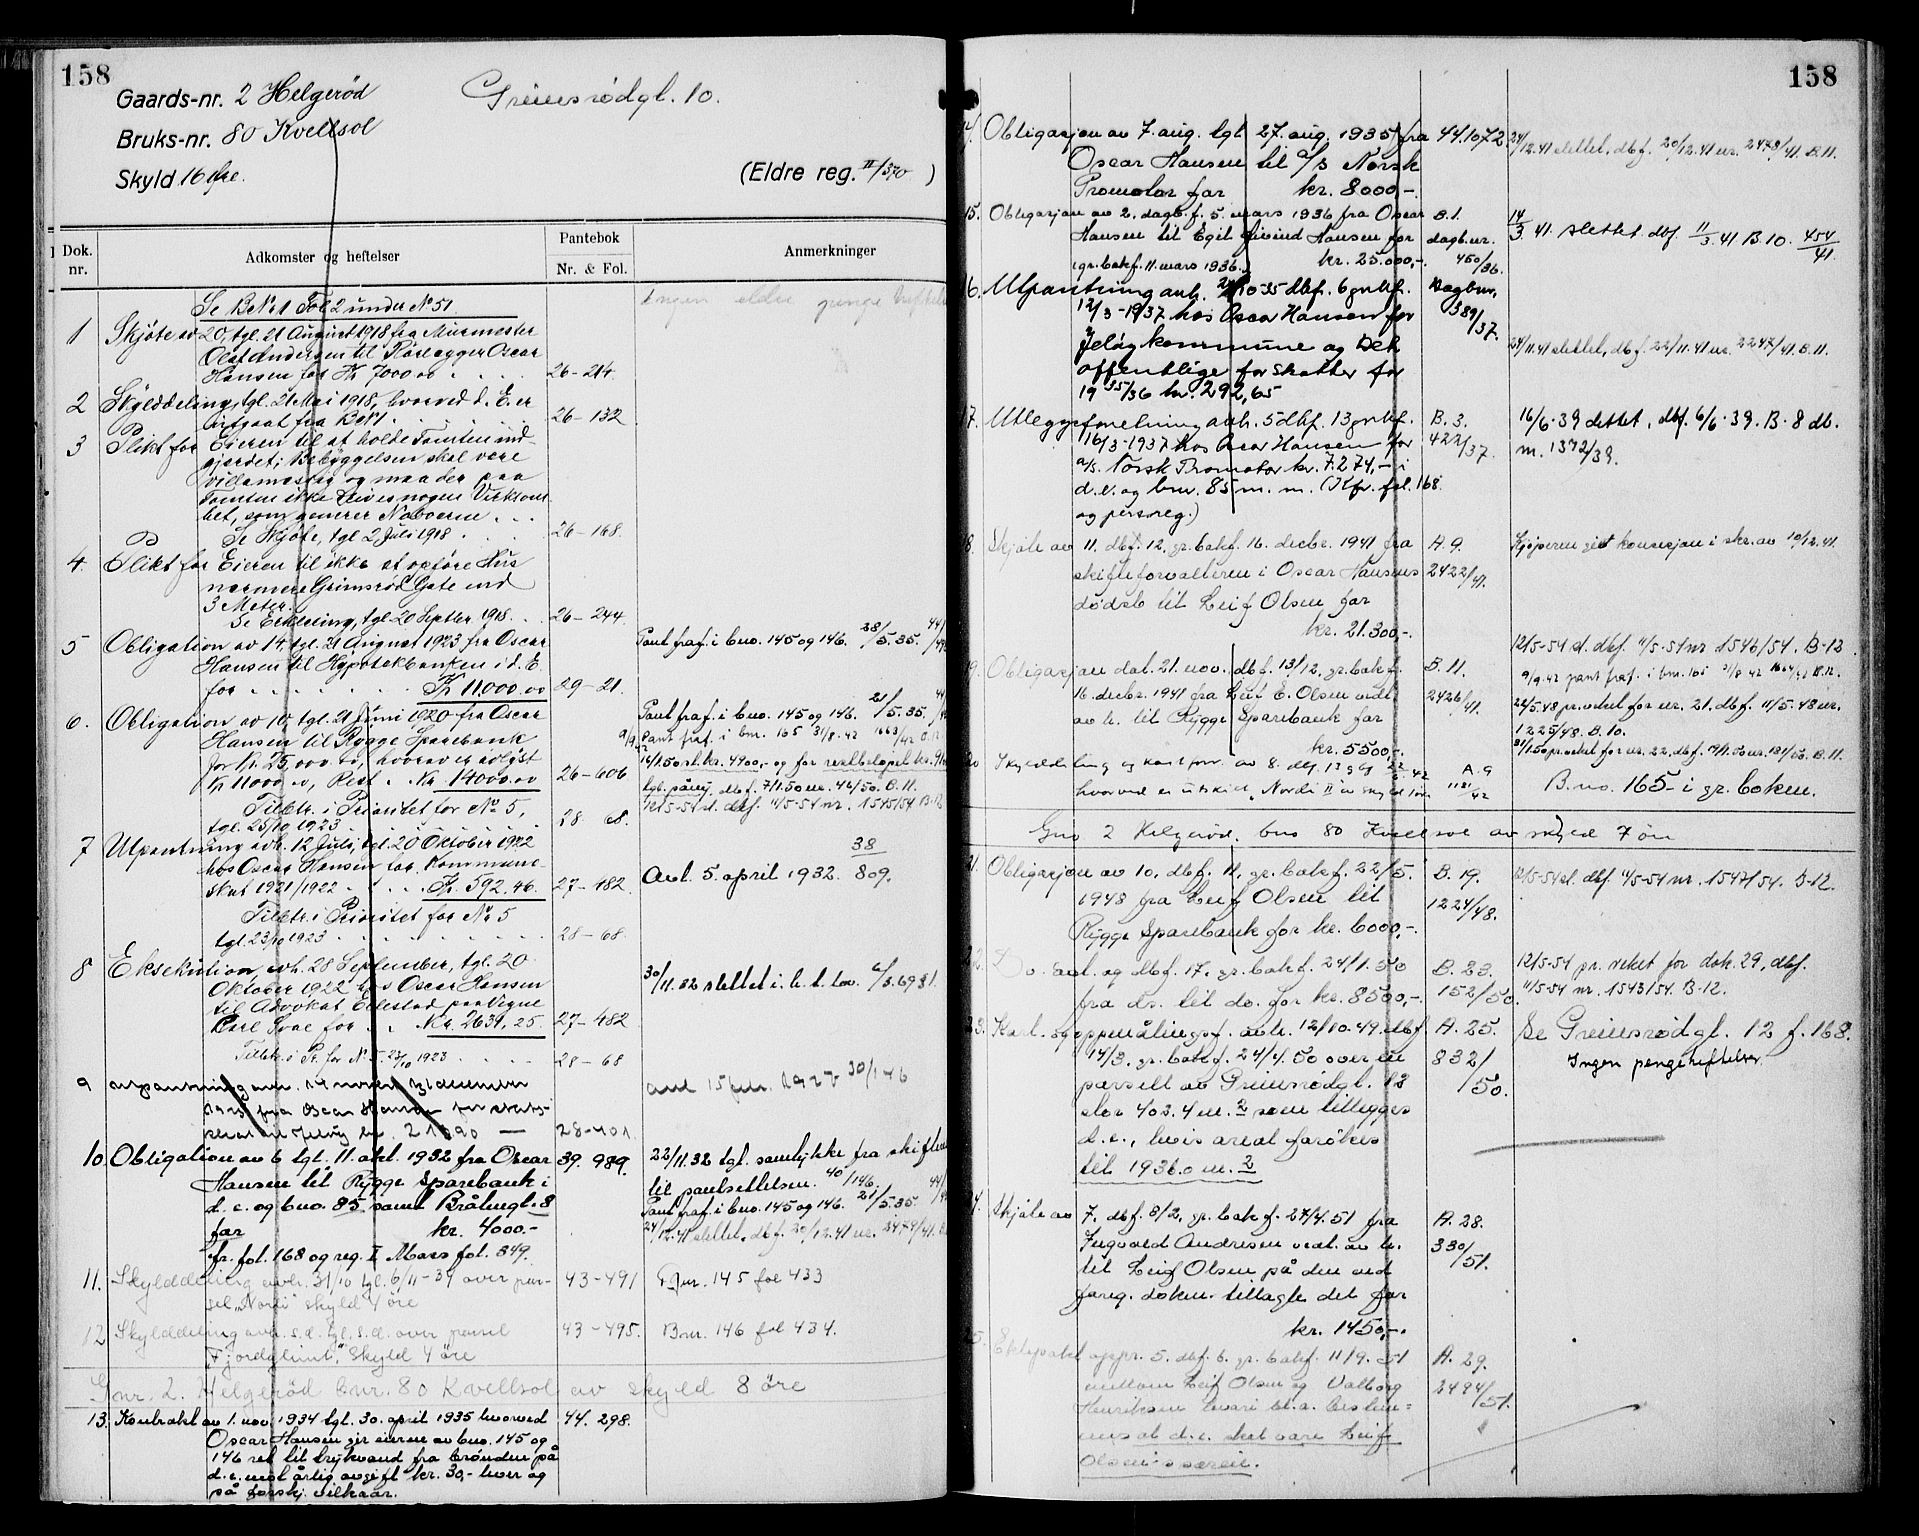 158
Gaards-nr. 2 Helgerød
Greinsrødgt. 10.
Bruks-nr. 80 Kvellsol
Skyld 16 Øre.
(Eldre reg. II/370 )
Dok. nr.
Adkomster og heftelser
Pantebok
Nr. & Fol.
Anmerkninger
Se B№ 1 Fol 2 under № 51
Ingen eldre penge heftelser
1 Skjöte av 20, tgl. 21 August 1918 fra Murmester
Olaf Andersen til Rörlegger Oscar
Hansen for Kr 7000.00 . . . 26-214.
2 Skylddeling, tgl. 21 Mai 1918, hvorved d. E. er
utgaat fra B№ 1 . 26-132
3 Plikt for Eieren til at holde Tomten ind-
gjerdet; Bebyggelsen skal være
villamæssig og maa der paa
Tomten ikke drives nogen Virksom-
het, som generer Naboerne . . .
Se Skjöte, tgl 2 Juli 1918 . 26-168.
4. Plikt for Eieren til ikke at opføre Hus
nærmere Grimsrød Gate end
3 Meter.
Se Erklæring, tgl. 20 Septbr. 1918 . . 26-244.
5 Obligation av 14, tgl. 21 August 1923 fra Oscar
Hansen til Hypotekbanken i d. E.
for . . . . . . Kr 11000.00 29-21.
Pant fraf. i bno. 145 og 146. 28/5.35.
6. Obligation av 10, tgl. 21 Juni 1920 fra Oscar
Hansen til Rygge Sparebank
for Kr. 25,000.00, hvorav er avlyst
Kr 11000.00, Rest . Kr. 14000.00 26-606
Tilktr. i Prioritet for № 5,
tgl. 25/10 1923 . 28 68.
Pant fraf. i bno. 145 og 146. 21/5.35.
9/9.42 Pant fraf. i bnr. 165 31/8.42 1663/42
16/1.50 sl. kr. 4900,- og for restbeløpet kr.
tgl. påny, dbf. 7/1.50 nr. 46/50. B.11.
12/5-54 sl. dbf. 11/5-54 nr. 1545/54 B-12
7 Utpantning avh. 12 Juli, tgl. 20 Oktober 1922
hos Oscar Hansen for Kommune-
skat 1921/1922 . . . . Kr. 592.46. 27-482.
Tilktr. i Prioritet for № 5
tgl. 23/10 1923 . . . . . 28-68.
Avl. 5. april 1932. 38 809.
8 Eksekution, avh. 28 September, tgl. 20
Oktober 1922 hos Oscar Hansen
til Advokat paa Vegne
Carl for . . Kr. 2631,25. 27-482
Tilktr. i Pr. for № 5. 23/10 1923 . . . . 28-68
30/11.32 slettet i. h. t. lov. 6/3.69 § 1.
9 Utpantning avh. 14 novbr. tgl 31 december
1923 fra Oscar Hansen for stats-
skat til Jeløy kr. 28-401
avl 15 1927 30/146
10. Obligation av 6 tgl. 11. okt. 1932 fra Oscar 39. 989.
Hansen til Rygge Sparebank i
d. e. og bno. 85 samt Bråtengt. 8
for kr. 4000.-
fr. fol. 168 og reg. I Moss fol. 849.
22/11.32 tgl. samtykke fra skifteretten
til pantsettelsen. 40/146.
Pant fraf. i bno. 145 og 146. 21/5.35.
24/12.41 slettet, dbf. 20/12.41 nr. 2474/41. B.
11. Skylddeling avh. 31/10 tgl. 6/11-34 over par-
sel „Nordi" skyld 4 øre 43-491 Bnr. 145 fol 433
12 Skylddeling avh. s.d. tgl. s.d. over parsel 43-495. Bnr. 146 fol 434.
„Fjordglimt", Skyld 4 øre
Gnr. 2. Helgerød bnr. 80 Kvellsol av skyld 8 öre
13. Kontrakt av 1. nov. 1934 tgl. 30. april 1935 hvorved 44. 298.
Oscar Hansen gir eierne av bno. 145 og
146 ret til trykvand fra brønden på
d. e. mot årlig avgift kr. 30,- hver og
på forskj. vilkaar.
158
14. Obligasjon av 7. aug. tgl. 27. aug. 1935 fra 44.1072
Oscar Hansen til A/S Norsk
Promotor for kr. 8000,-.
24/12.41 slettet, dbf. 20/12.41 nr. 2473/41. B.11.
15. Obligasjon av 2. dagb.f. 5. mars 1936 fra Oscar B.1.
Hansen til Egil Eivind Hansen for dagb.nr.
(gr. bokf. 11. mars 1936.) kr. 25.000,-. 450/36.
14/3 41. slettet. dbf. 11/3.41 B.10. 454/41.
16. Utpantning avh. 24/10-35 dbf. 6 grbkf. Dagbnr.
12/3-1937 hos Oscar Hansen for 389/37.
Jeløy kommune og Det
offentlige for skatter for
1935/36 kr. 292,65
24/11.41 slettet, dbf. 22/11.41 nr. 2247/41. B.11.
17. Utleggsforretning avh. 5 dbf. 13 grbkf. B. 3.
16/3-1937 hos Oscar Hansen for 422/37.
A/S Norsk Promotor kr. 7.274,- i
d. e. og bnr. 85 m. m. (Kfr. fol. 168
og persreg.)
16/6-39 slettet, dbf. 6/6-39. B. 8 db.
nr. 1372/39.
18. Skjøte av 11. dbf. 12. gr. bokf. 16. decbr. 1941 fra A. 9.
skifteforvalteren i Oscar Hansens 2422/41.
dødsb til Leif Olsen for
kr. 21.300,-.
Kjøperen gitt konsesjon i skr. av 10/12.41.
19. Obligasjon dat. 21. nov. dbf. 13/12, gr. bok f. B. 11.
16. decbr. 1941 fra Leif E. Olsen vedt. 2426/41.
av h. til Rygge Sparebank for
kr. 5500,-.
12/5-54 sl. dbf. 11/5-54 nr 1546/54. B-12
9/9.42 pant fraf. i bnr. 165 31/8 42 1664/42 B.12.
22/5.48 pr. veket for nr. 21. dbf. 11/5.48 nr.
1225/48. B.10.
31/1.50 pr. veket for nr. 22, dbf. 131/50. B. 11.
20 Skylddeling og kartforr. av 8. dbf. 12 gbf 22/5 42 A. 9
hvorved er utskilt „Nordi II" av skyld 1 øre 1121/42
B.no. 165- i gr. boken.
Gno 2 Helgerød. bno 80 Kvellsol av skyld 7 ører
21. Obligasjon av 10. dbf. 11, gr. bokf. 22/5. B. 19.
1948 fra Leif Olsen til 1224/48.
Rygge Sparebank for kr. 6000,-.
12/5-54 sl. dbf. 11/5-54 nr. 1547/54. B-12.
22. Do. av og dbf. 17. gr. bokf. 24/1.50 B. 23.
fra ds. til do. for kr. 8500,-. 152/50.
12/5-54 pr. veket for dok. 29, dbf.
11/5-54 nr. 1543/54. B-12.
23. Kart- og oppmålingsf. avh. 12/10.49 dbf. A. 25.
14/3. gr. bokf. 24/4.50 over en 832/50.
parsell av Greinsrødgt. 12
stor 402.4 m.2 som tillegges
d. e., hvis areal forökes
til 1936.0 m.2
Se Greinsrødgt. 12 f. 168.
Ingen pengeheftelser
24. Skjøte av 7, dbf. 8/2, gr. bok f. 27/4.51 fra A. 28.
Ingvald Andresen vedt. av h. 330/51.
til Leif Olsen på den ved
foreg. dokm. tillagte del for
kr. 1450,-.
25. Ektepakt oppr. 5. dbf. 6. gr. bokf. 11/9. 51 A. 29.
mellom Leif Olsen og Valborg 2494/51.
Henriksen hvori bl.a. bestem-
mes at d. e. skal være Leif
Olsens særeie.